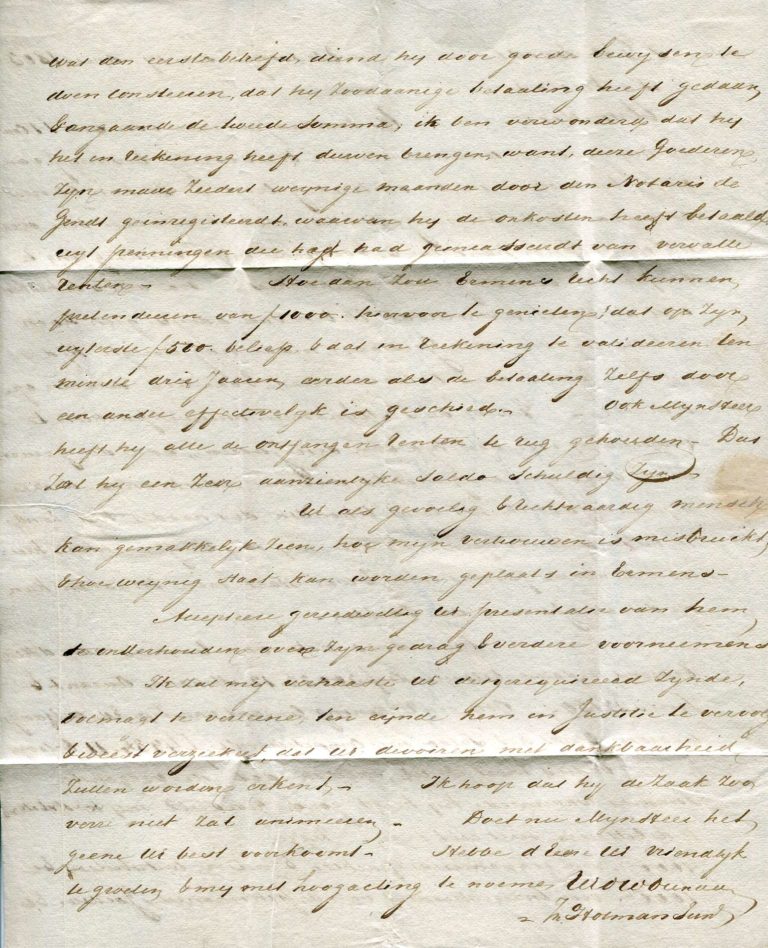 wat den eerste betrefd, diend hij door goede bewijsen te
doen consteeren, dat hij zoodaanige betaaling heeft gedaan,
Aangaande de tweede somma, ik ben verwonderd dat hij
het in Reekening heeft durven brengen, want, deeze Goederen,
zijn maar zeedert weijnige maanden door den Notaris de
Gendt geinregisteerdt, waarvan hij de onkosten heeft betaald
uijt penningen die had gemeassuerdt van vervalle
Renten - Hoe dan zou Eemens recht kunnen
pretendeeren van ƒ1000. hiervoor te genieten, dat op zijn
uijterste ƒ500. beloop & dat in Reekening te valideeren ten
minste drie Jaaren, eerder als de betaaling zelfs door
een ander effectivelijk is geschied. - Ook Mijnheer
heeft hij alle de ontfangen Renten te rug gehouden - Dus
zal hij een zeer aanzienlijke soldo schuldig zijn -
U als gevoelig & rechtvaardig mensch
kan gemakkelijk zeen, hoe mijn vertrouwen is misbruikt,
& hoe weijnig staat kan worden geplaats in Eemens -
Accepteere gereedwillig U presentatie van hem,
te onderhouden over zijn gedrag & verdere voorneemens
Ik zal mij verhaaste U des gerequireerd zijnde,
volmagt te verleene, ten eijnde hem in Justitie te vervol
& weest verzeekert, dat U devoiren met dankbaarheid
zullen worden erkent - Ik hoop dat hij de zaak zoo
verre niet zal animeeren, - Doet nu Mijnheer het
geene U best voorkomt - Hebbe d'Eere U vriendlijk
te groeten, & mij met hoogagting te noemen UEDWDienaar
Hoeman Junr